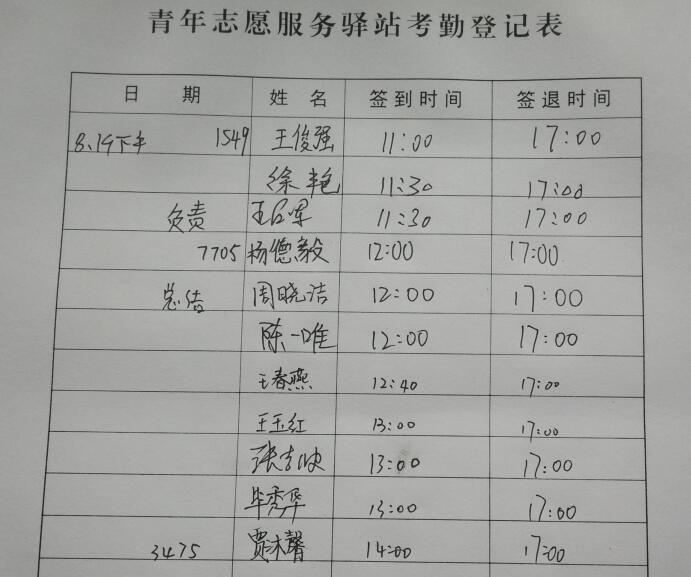 青年志愿服务驿站考勤登记表
日 期 姓 名 签到时间 签退时间
8.19下午 1549 王俊强 11:00 17:00
徐艳 11:30 17:00
负责 11:30 17:00
7705 杨德毅 12:00 17:00
总结 周晓洁 12:00 17:00
陈一唯 12:00 17:00
王春燕 12:40 17:00
王玉红 13:00 17:00
13:00 17:00
毕秀华 13:00 17:00
3475 贾木馨 14:00 17:00